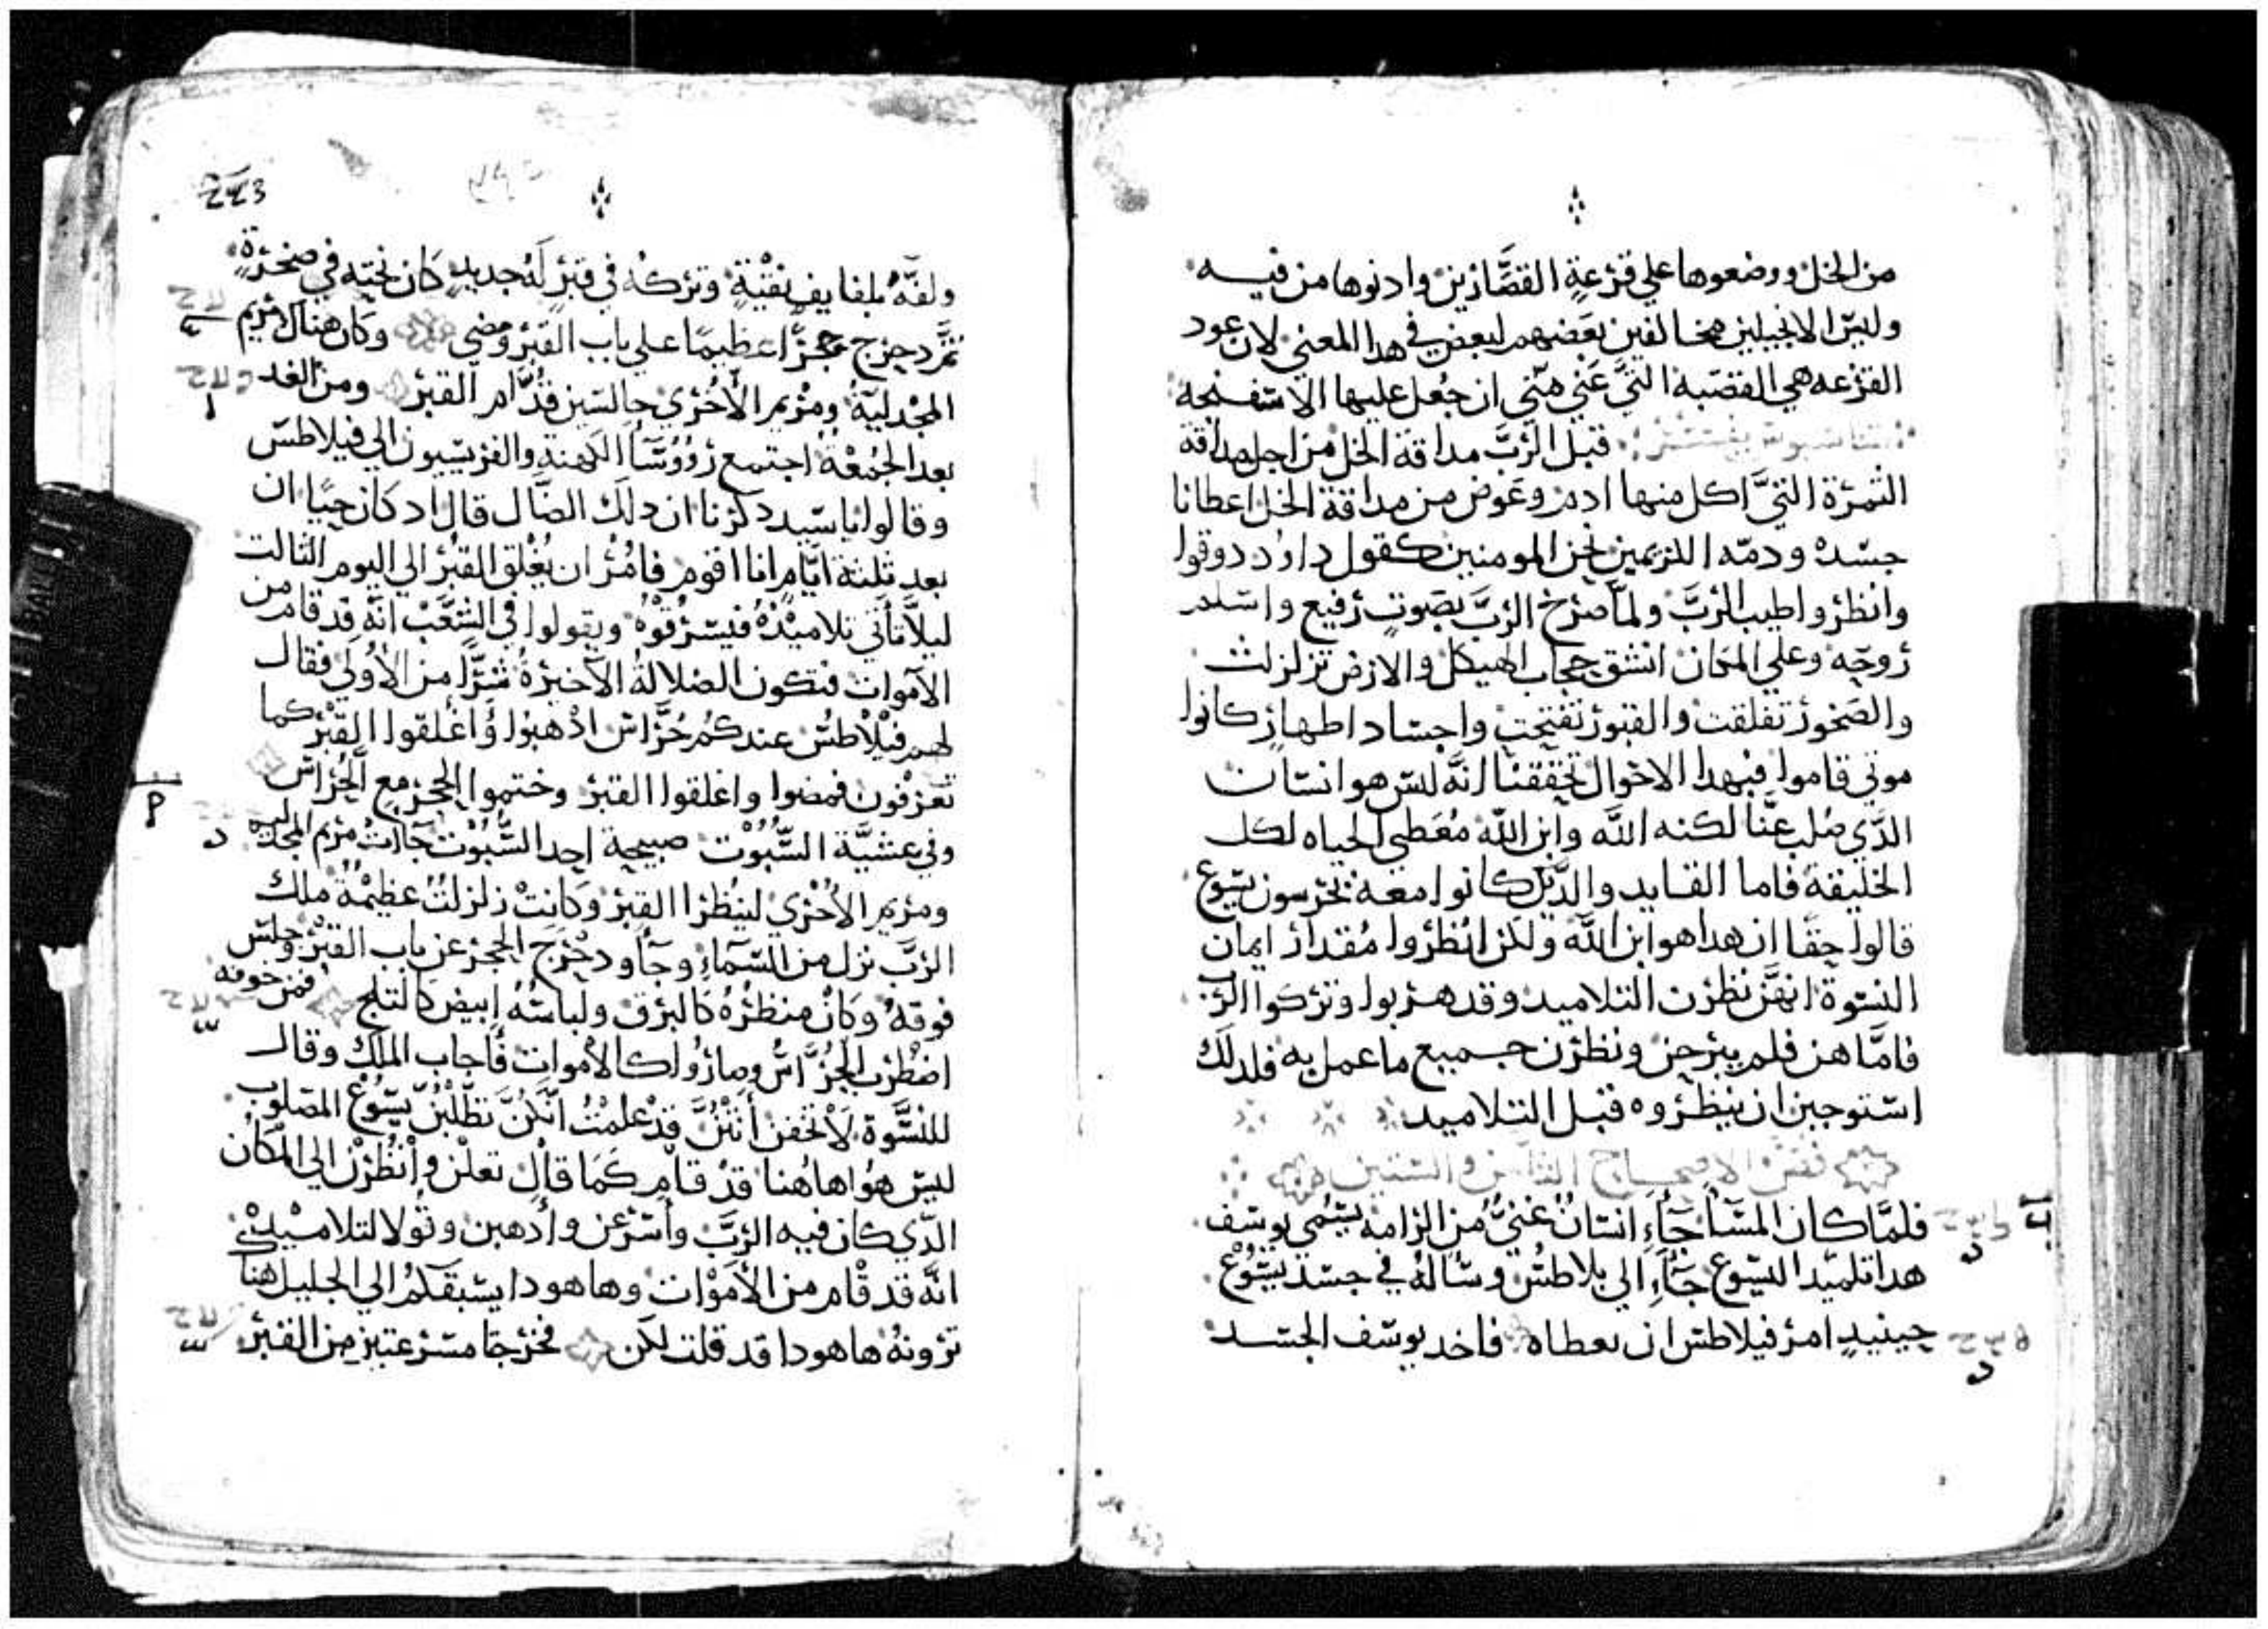 من الخل ووضعوها علي قرعة القصارين وادنوها من فيه
وليس الانجيلين مخالفين بعضهم لبعض في هدا المعني لان عود
القرعه هي القصبه التي عني متي ان جعل عليها الاسفنجه
قبل الرب مداقة الخل من اجل مداقة
الثمرة التي اكل منها ادم وعوض من مداقة الخل اعطانا
جسده ودمه الكريمين نحن المومنين كقول داود دوقوا
وانظروا طيب الرب ولما صرخ الرب بصوت رفيع واسلم
روحه وعلي المكان انشق حجاب الهيكل والارض تزلزلت
والصخور تفلقت والقبور تفتحت واجساد اطهار كانوا
موتي قاموا فبهدا الاحوال تحققنا انه ليس هو انسان
الدي صلب عنا لكنه الله وابن الله معطي الحياه لكل
الخليقة فاما القايد والدين كانوا معه يحرسون يسوع
قالوا حقا ان هدا هو ابن الله ولكن انظروا مقدار ايمان
النسوة انهن نظرن التلاميد وقد هربوا وتركوا الرب
فاما هن فلم يبرحن ونظرن جميع ما عمل به فلدلك
استوجبن ان ينظروه قبل التلاميد
فض الاصحاح الثامن والستين
فلما كان المسا جاء انسان غني من الرامه يسمي يوسف
هدا تلميد اليسوع جاء الي بلاطس وساله في جسد يسوع
حينيد امر فيلاطس ان يعطاه فاخد يوسف الجسد
243
ولفه بلفايف نقية وتركه في قبر له جديد كان نحته في صخرة
ثم دحرج حجرا عظيما علي باب القبر ومضي وكان هناك مريم
المجدلية ومريم الاخري جالسين قدام القبر ومن الغد
بعد الجمعة اجتمع رووسا الكهنة والفريسيون الي فيلاطس
وقالوا يا سيد دكرنا ان دلك الضال قال اد كان حيا ان
بعد ثلثة ايام انا اقوم فامر ان يغلق القبر الي اليوم الثالت
ليلا تاتي تلاميده فيسرقوه ويقولوا في الشعب انه قد قام من
الاموات فتكون الضلالة الاخيرة شرا من الاولي فقال
لهم فيلاطس عندكم حراس ادهبوا واغلقوا القبر كما
تعرفون فمضوا واغلقوا القبر وختموا الحجر مع الحراس
وفي عشية السبوت صبيحة احد السبوت جات مريم المجدليه
ومريم الاخري لينظرا القبر وكانت زلزلت عظيمة ملك
الرب نزل من السماء وجاء ودحرج الحجر عن باب القبر وجلس
فوقه وكان منظره كالبرق ولباسه ابيض كالتلج فمن خوفه
اضطرب الحراس وصاروا كالاموات فاجاب الملك وقال
للنسوة لا تخفن انتن قد علمت انكن تطلبن يسوع المصلوب
ليس هو هاهنا قد قام كما قال تعلن وانظرن الي المكان
الدي كان فيه الرب واسرعن وادهبن وقولا لتلاميده
انه قد قام من الاموات وها هودا يسبقكم الي الجليل هناك
ترونه ها هودا قد قلت لكن فخرجتا مسرعتين من القبر